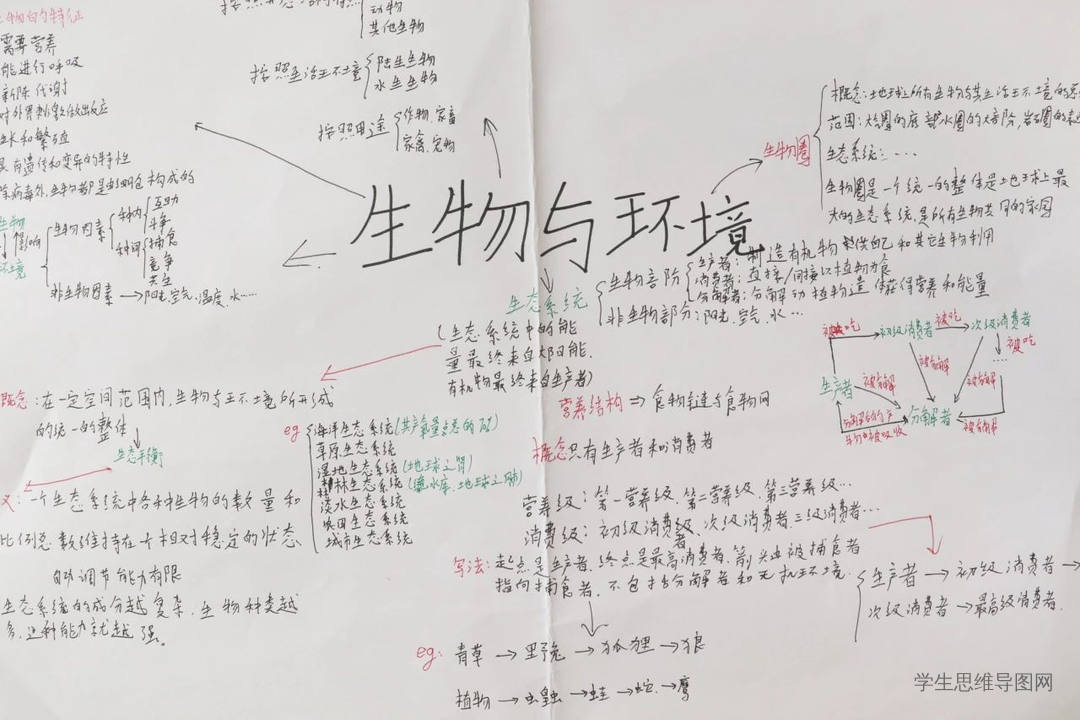 需要营养
能进行呼吸
新陈代谢
对外界刺激做出反应
生长和繁殖
具有遗传和变异的特性
除病毒外,生物都是由细胞构成的
动物
其他生物
按照生活环境
陆生生物
水生生物
按照用途
作物,家畜
家禽,宠物
生物与环境
生物圈
概念:地球上所有生物与其生活环境的总
范围:大气圈的底部水圈的大部分,岩石圈的表
生态系统:……
生物圈是一个统一的整体是地球上最
大的生态系统,是所有生物共同的家园
生物
影响
环境
生物因素
种内
互助
斗争
种间
捕食
竞争
共生
非生物因素→阳光,空气,温度,水……
生态系统
(生态系统中的能
量最终来自太阳能,
有机物最终来自生产者)
生物部分
生产者:制造有机物 供自己和其它生物利用
消费者:直接/间接以植物为食
分解者:分解动植物遗体获得营养和能量
非生物部分:阳光,空气,水…
被吃
初级消费者
被吃
次级消费者
被吃
……
生产者
被分解
被分解
被分解
分解者
被分解
营养结构→食物链与食物网
概念只有生产者和消费者
营养级:第一营养级,第二营养级,第三营养级…
消费级:初级消费者、次级消费者三级消费者…
写法:起点是生产者,终点是最高消费者,箭头由被捕食者
指向捕食者,不包括分解者和无机环境.
生产者→初级消费者→
次级消费者→最高级消费者.
eg:青草→野兔→狐狸→狼
植物→虫→蛙→蛇→鹰
概念:在一定空间范围内,生物与环境所形成
的统一的整体
生态平衡
eg
海洋生态系统
草原生态系统
湿地生态系统(地球之肾)
森林生态系统(绿水库,地球之肺)
淡水生态系统
农田生态系统
城市生态系统
义:一个生态系统中各种生物的数量和
比例总数维持在一个相对稳定的状态
自我调节能力有限
生态系统的成分越复杂,生物种类越
多,这种能力就越强。
学生思维导图网